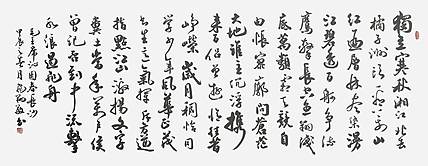 獨立寒秋湘江北去
橘子洲頭看萬山
紅遍層林盡染漫
江碧透百舸爭流
鷹擊長空魚翔淺
底萬類霜天競自
由悵寥廓問蒼茫
大地誰主沉浮攜
來百侶曾遊憶往昔
崢嶸歲月稠恰同
學少年風華正茂
書生意氣揮斥方遒
指點江山激揚文字
糞土當年萬戶侯
曾記否到中流擊
水浪遏飛舟
毛主席沁園春長沙